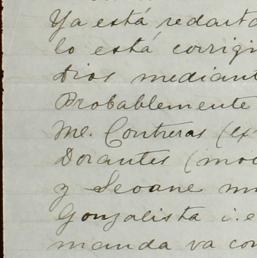 Ya está redacta
lo está corrigi
Dios mediant
Probablemente
Me. Contreras (ex
Dorantes (moc
y Seoane mu
Gonzalista i.e
manda va con